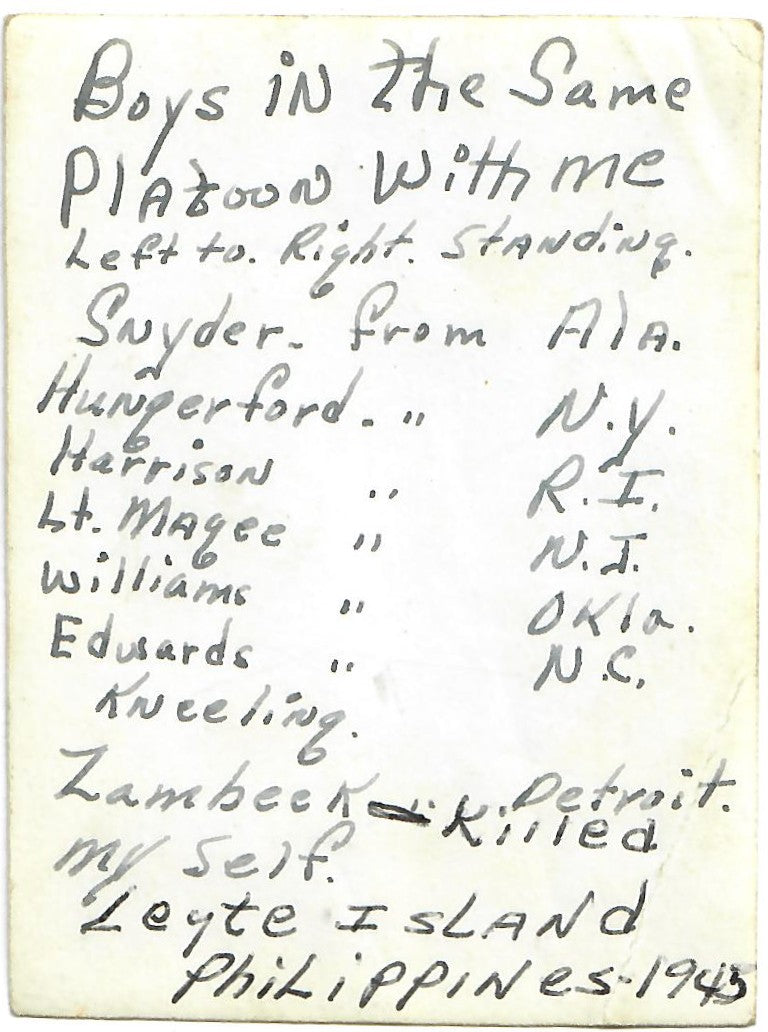 Boys in the Same
Platoon with me
Left to. Right. Standing.
Snyder. from Ala.
Hungerford. " N.Y.
Harrison " R.I.
Lt. Magee " N.J.
Williams " Okla.
Edwards " N.C.
Kneeling.
Zambeek " Detroit.
- Killed
my self.
Leyte Island
Philippines-1945